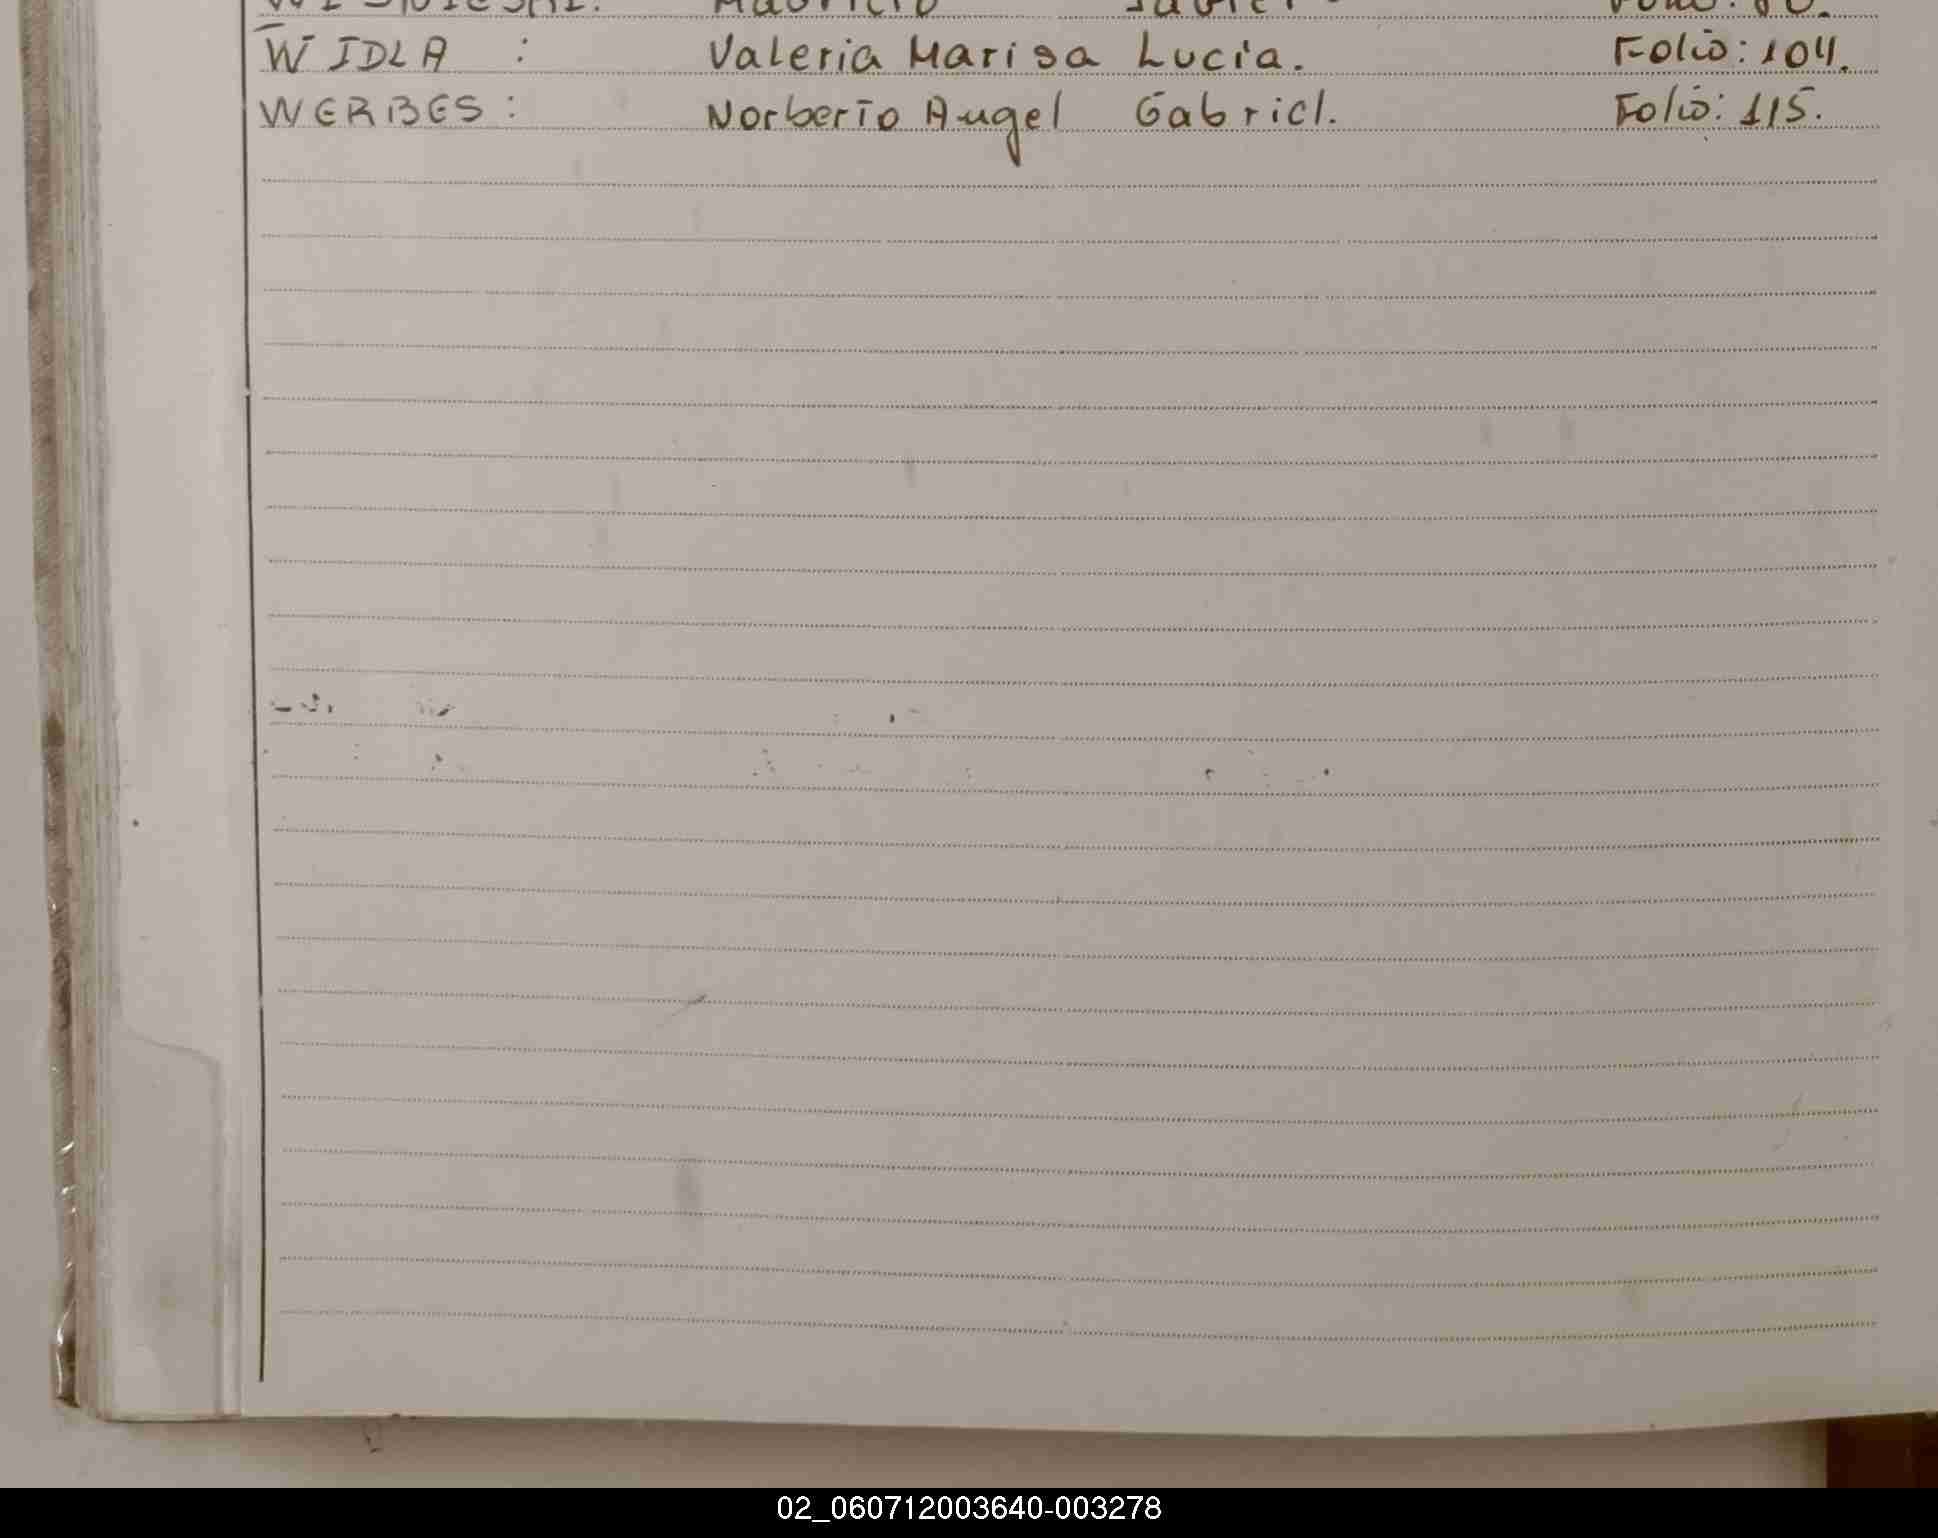 Mauricio Javier
WIDLA : Valeria Marisa Lucia. Folio: 104.
WERBES : Norberto Angel Gabriel. Folio: 115.
02_060712003640-003278